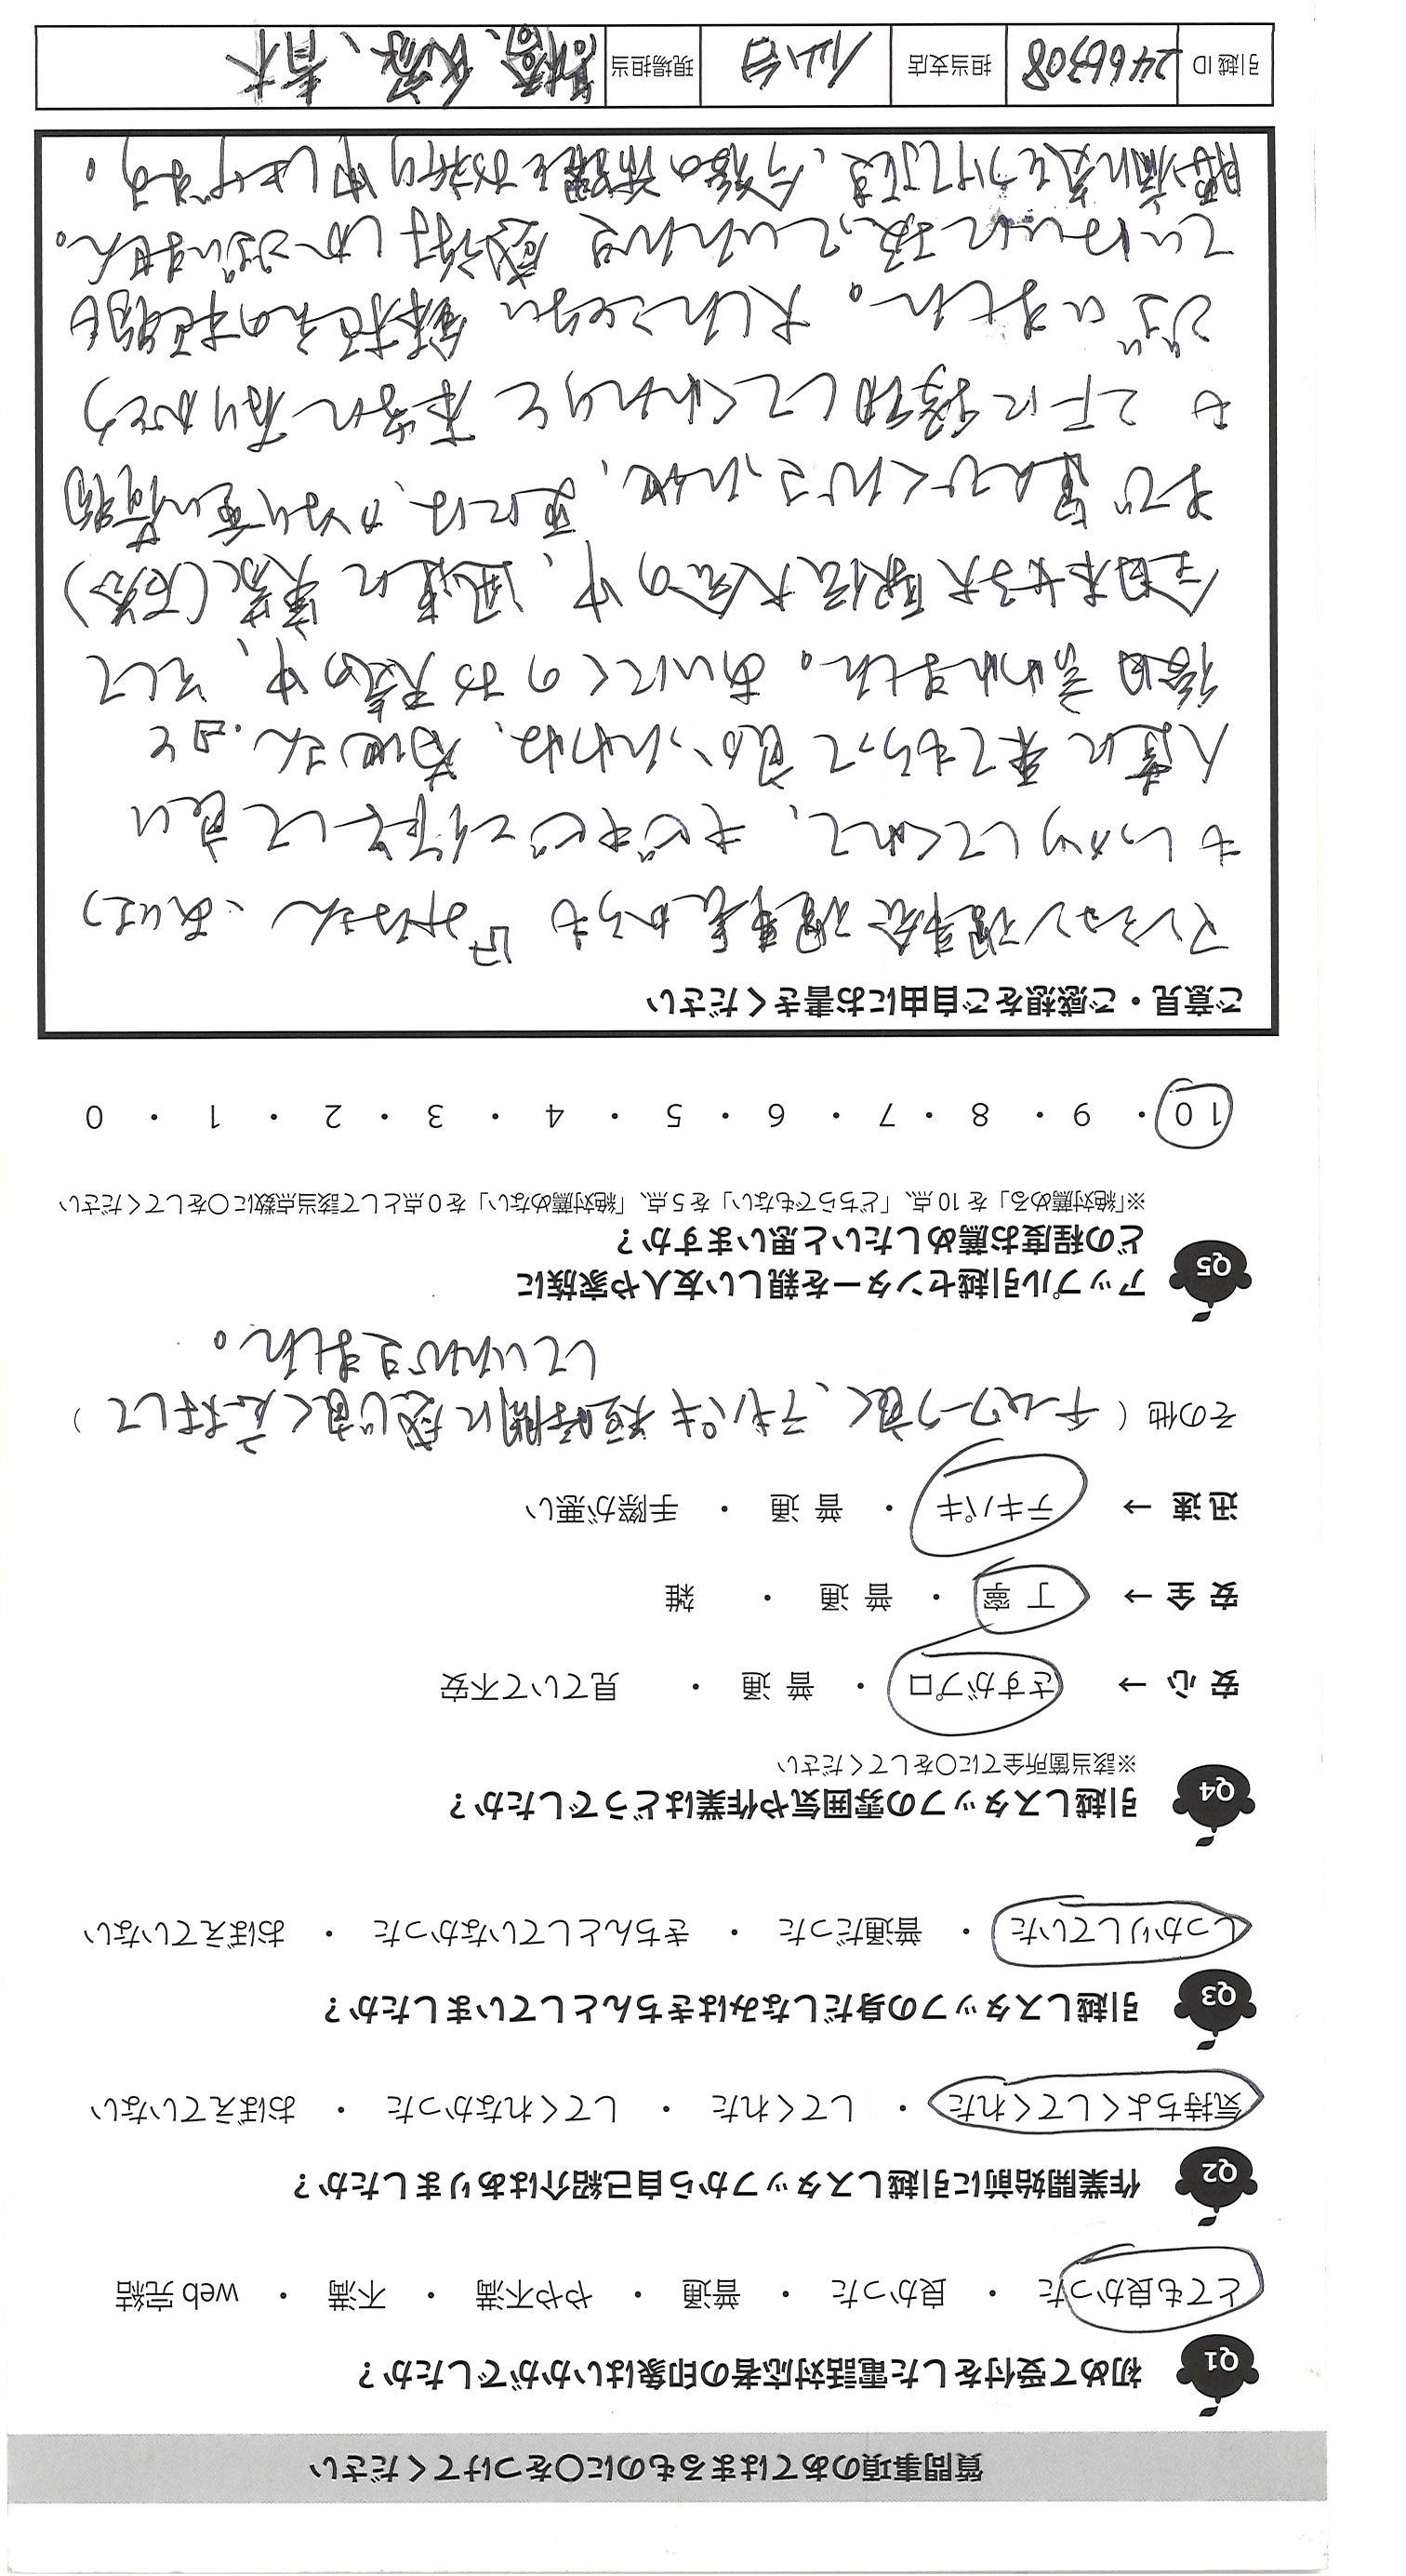 質問事項のあてはまるものに〇をつけてください
Q1 初めて受付をした電話対応者の印象はいかがでしたか？
とても良かった ・ 良かった ・ 普通 ・ やや不満 ・ 不満 ・ web 完結
Q2 作業開始前に引越しスタッフから自己紹介はありましたか？
気持ちよくしてくれた ・ してくれた ・ してくれなかった ・ おぼえていない
Q3 引越しスタッフの身だしなみはきちんとしていましたか？
しっかりしていた ・ 普通だった ・ きちんとしていなかった ・ おぼえていない
Q4 引越しスタッフの雰囲気や作業はどうでしたか？
※該当箇所全てに〇をしてください
安心 → さすがプロ ・ 普通 ・ 見ていて不安
安全 → 丁寧 ・ 普通 ・ 雑
迅速 → テキパキ ・ 普通 ・ 手際が悪い
その他（ チームワーク良く、テキパキ短時間に感じ良く応対して ）
していただきました。
Q5 アップル引越センターを親しい友人や家族に
どの程度お薦めしたいと思いますか？
※「絶対薦める」を 10 点、「どちらでもない」を 5 点、「絶対薦めない」を 0 点として該当点数に〇をしてください
10 ・ 9 ・ 8 ・ 7 ・ 6 ・ 5 ・ 4 ・ 3 ・ 2 ・ 1 ・ 0
ご意見・ご感想をご自由にお書きください
マンション理事会理事長からも『お さん、あいさつ
もしっかりしてくれて、キビキビと作業して良い
人達に来てもらって良かったわね、菊地さん.』と
後日言われました。あいにくのお天気の中、そして
全日本女子大駅伝大会の中、迅速に 実家(石巻)
まで運んでくださった他、更には、かなり重い荷物
も 2Fに移動してくれたりと 本当に有りがとう
ございました。大したことない 鉢植えの植物も
ていねいに扱っていただき 感謝しかございません。
時節柄、気をつけて頂き、今後の活躍をお祈り申し上げます。
引越 ID 2466308 担当支店 仙台 現場担当 高橋、 、青木